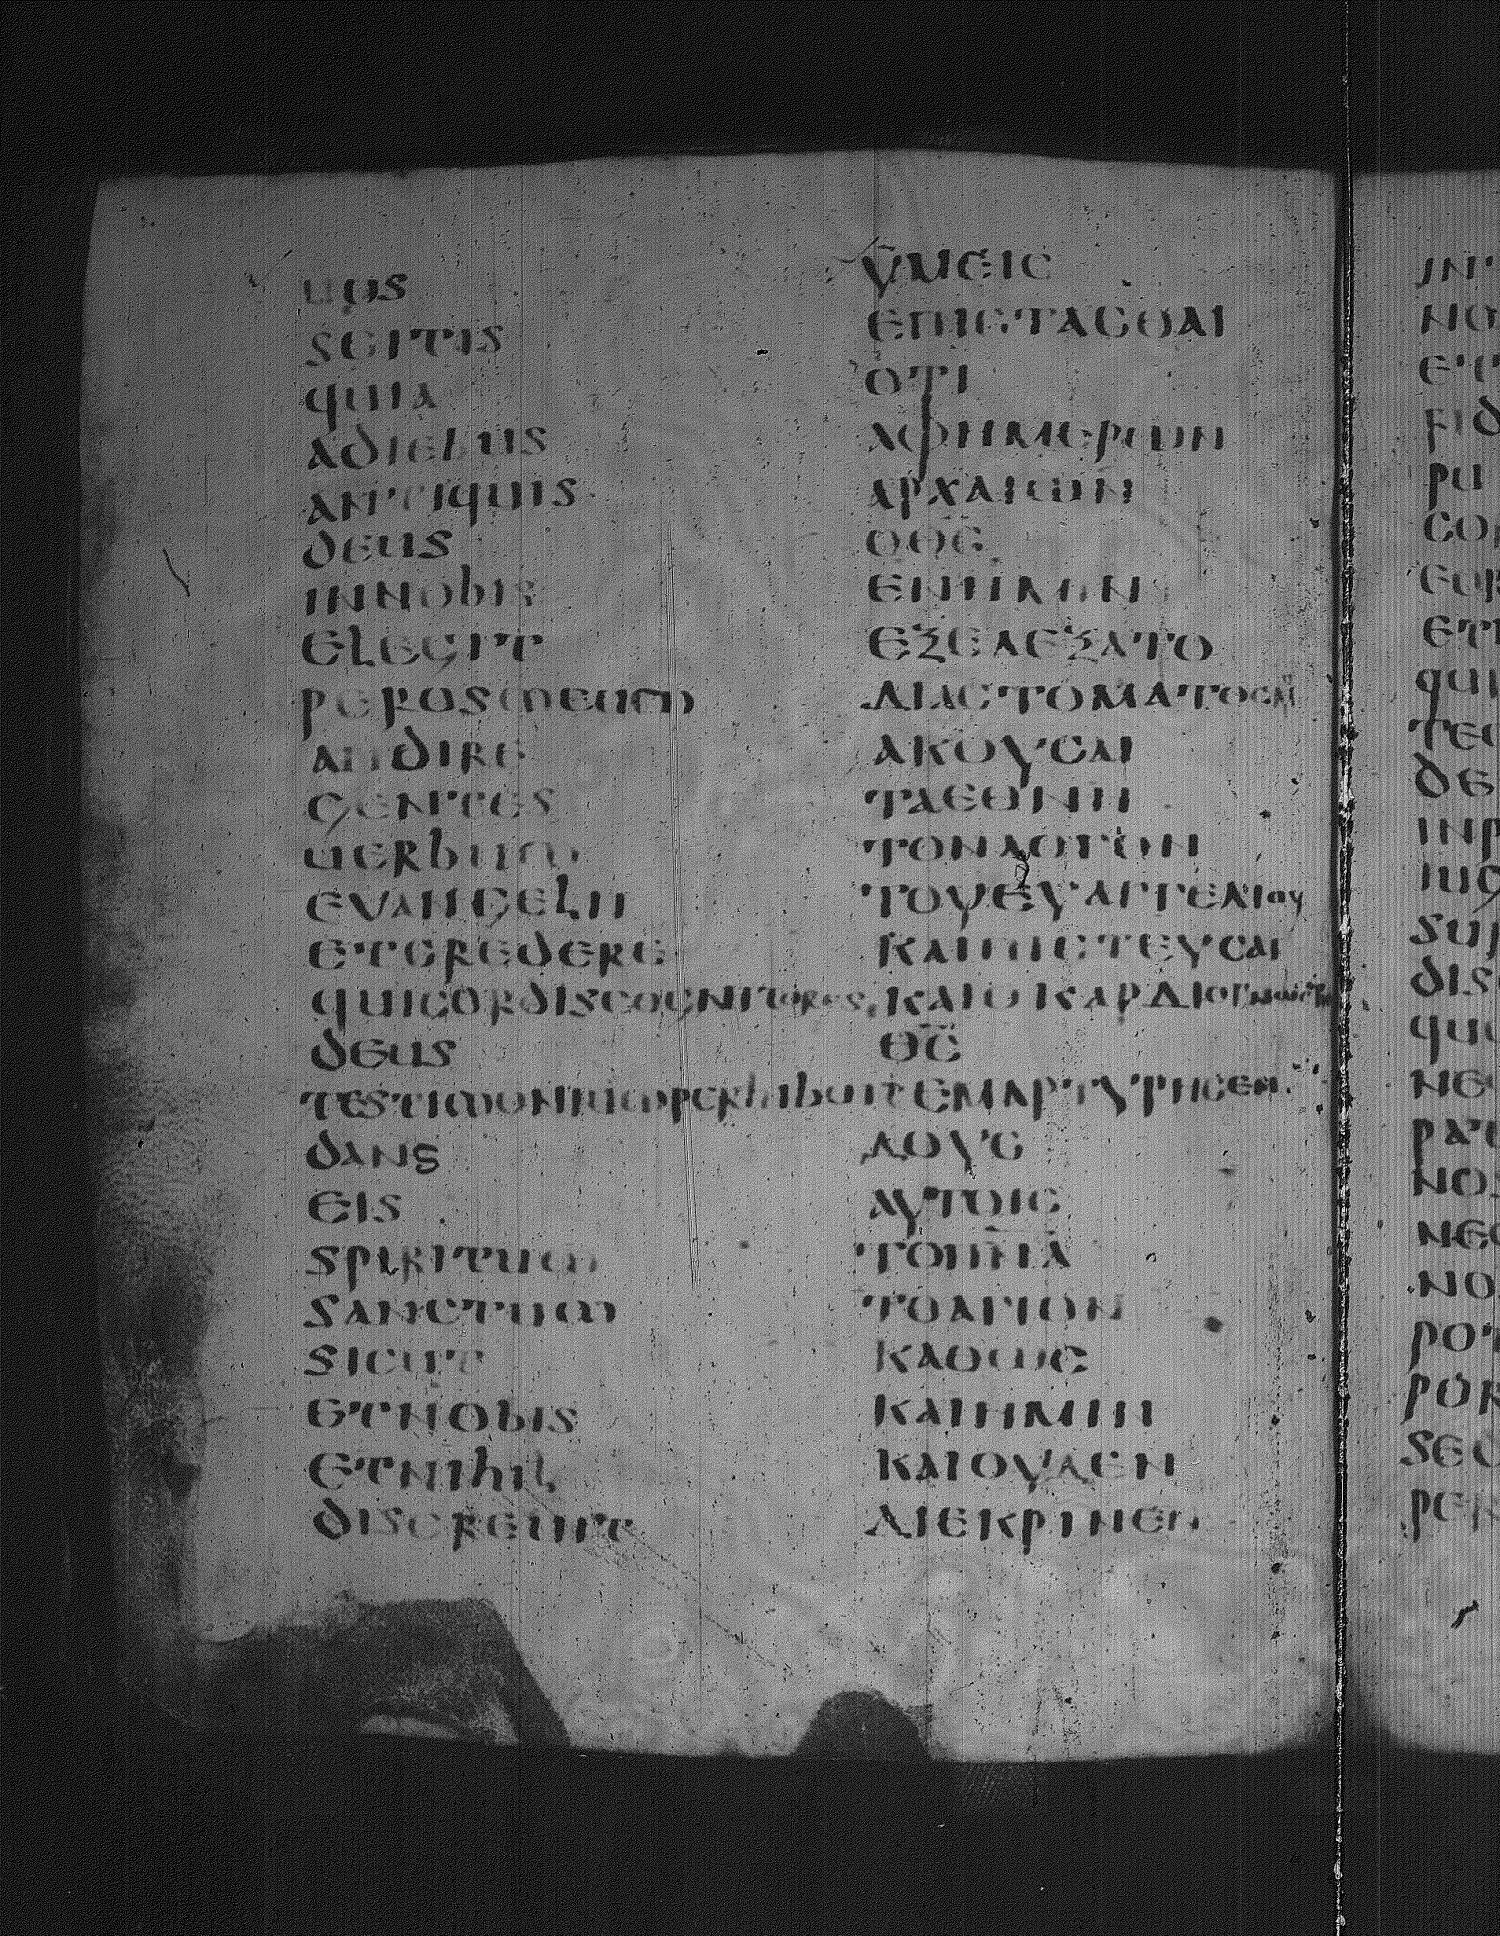 uos
scitis
quia
adiebus
antiquis
deus
innobis
elegit
perosmeum
audire
gentes
uerbum
evangelii
etcredere
quicordiscognitores
deus
testimoniumperhibuit
dans
eis
spiritum
sanctum
sicut
etnobis
etnihil
discreuit
ὙΜΕΙC
ΕΠΙΕΤΑCΘΑΙ
ΟΤΙ
ΑΦΗΜΕΡΩΝ
ΑΡΧΑΙΩΝ
ΟΘΕ
ΕΝΗΜΙΝ
ΕΞΕΛΕΞΑΤΟ
ΔΙΑCΤΟΜΑΤΟC
ΑΚΟΥCΑΙ
ΤΑΕΘΝΗ
ΤΟΝΛΟΓΟΝ
ΤΟΥΕΥΑΓΓΕΛΙΟΥ
ΚΑΙΠΙCΤΕΥCΑΙ
ΚΑΙΟΚΑΡΔΙΟΓΝΩCΤΗC
ΘC
ΕΜΑΡΤΥΡΗCΕΝ
ΔΟΥC
ΑΥΤΟΙC
ΤΟΠΝΑ
ΤΟΑΓΙΟΝ
ΚΑΘΩC
ΚΑΙΗΜΙΝ
ΚΑΙΟΥΔΕΝ
ΔΙΕΚΡΙΝΕΝ